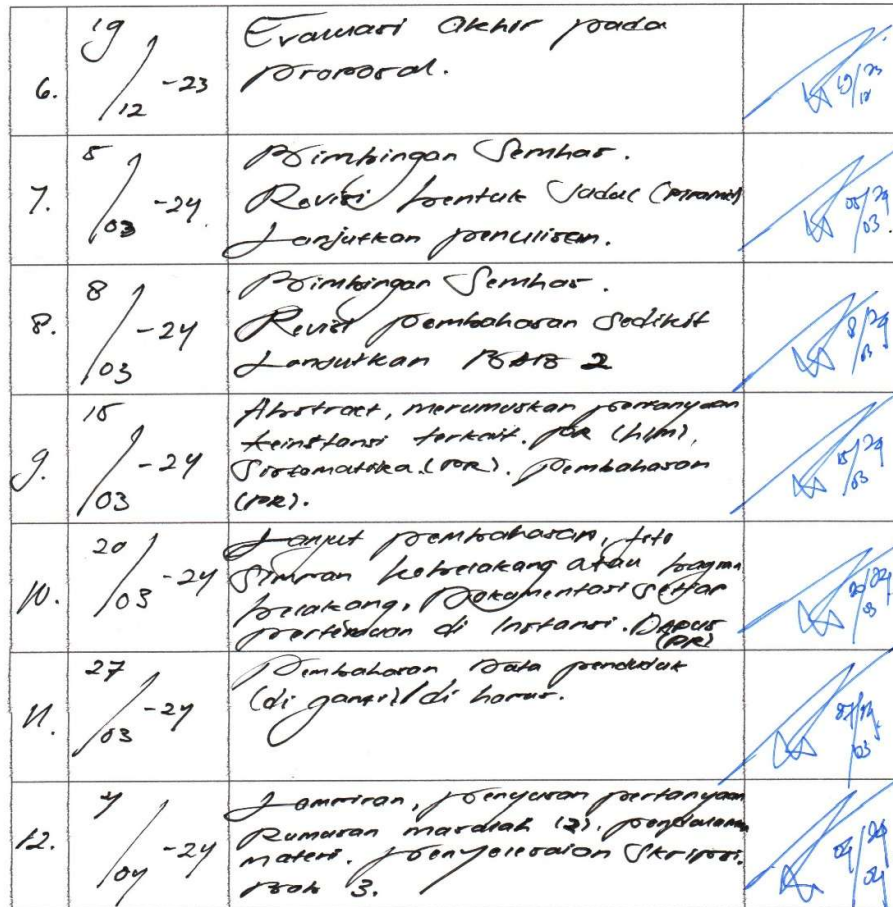 6.
19/12-23
Evaluasi Akhir pada
proposal.
19/12 23
7.
5/03-24
Bimbingan Semhas.
Revisi bentuk Judul (Piramid)
Lanjutkan penulisan.
05/03 24
8.
8/03-24
Bimbingan Semhas.
Revisi pembahasan sedikit
Lanjutkan BAB 2
8/03 24
9.
15/03-24
Abstract, merumuskan pertanyaan
keinstansi terkait. PR (hlm),
Sistematika (PR). Pembahasan
(PR).
15/03 24
10.
20/03-24
Lanjut pembahasan, foto
Simpan kebelakang atau bagian
belakang, Dokumentasi setiap
pertemuan di Instansi. DAPUS
(PR)
20/03 24
11.
27/03-24
Pembahasan Data penduduk
(di ganti)/di hapus.
27/03 24
12.
4/04-24
Lampiran, penyusun pertanyaan
Rumusan masalah (2).
materi. penyelesaian Skripsi.
Bab 3.
04/04 24